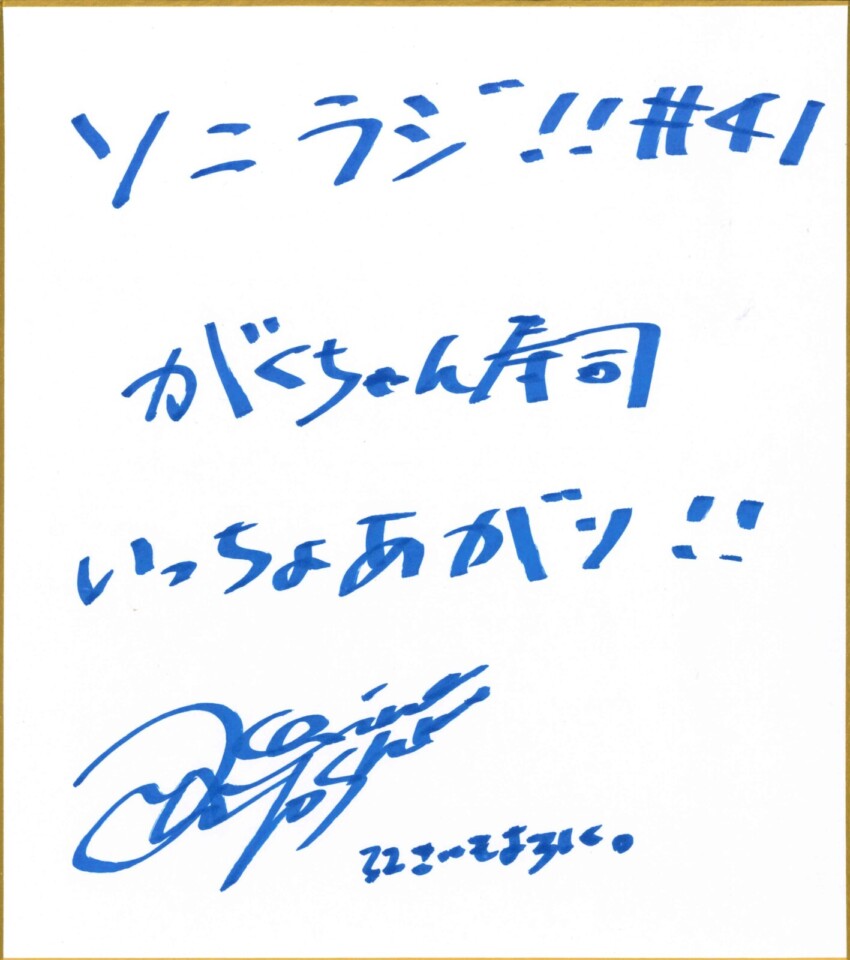 ソニラジ!!#41
がくちゃん寿司
いっちょあがり!!
32さいもよろしく。